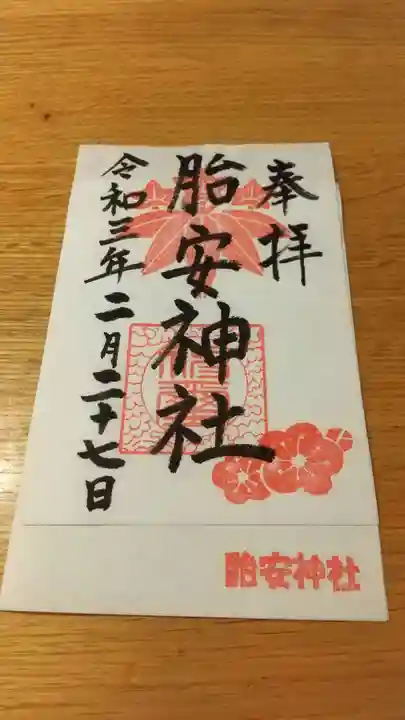 奉拝
胎安神社
令和三年二月二十七日
胎安神社